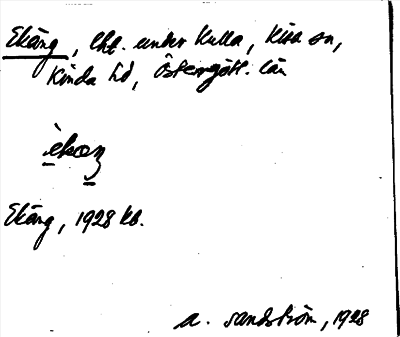 Ekäng, lht. under Kulla, Kisa sn,
Kinda hd, Östergötl. län
Ekäng, 1928 kb.
A. Sandström, 1928